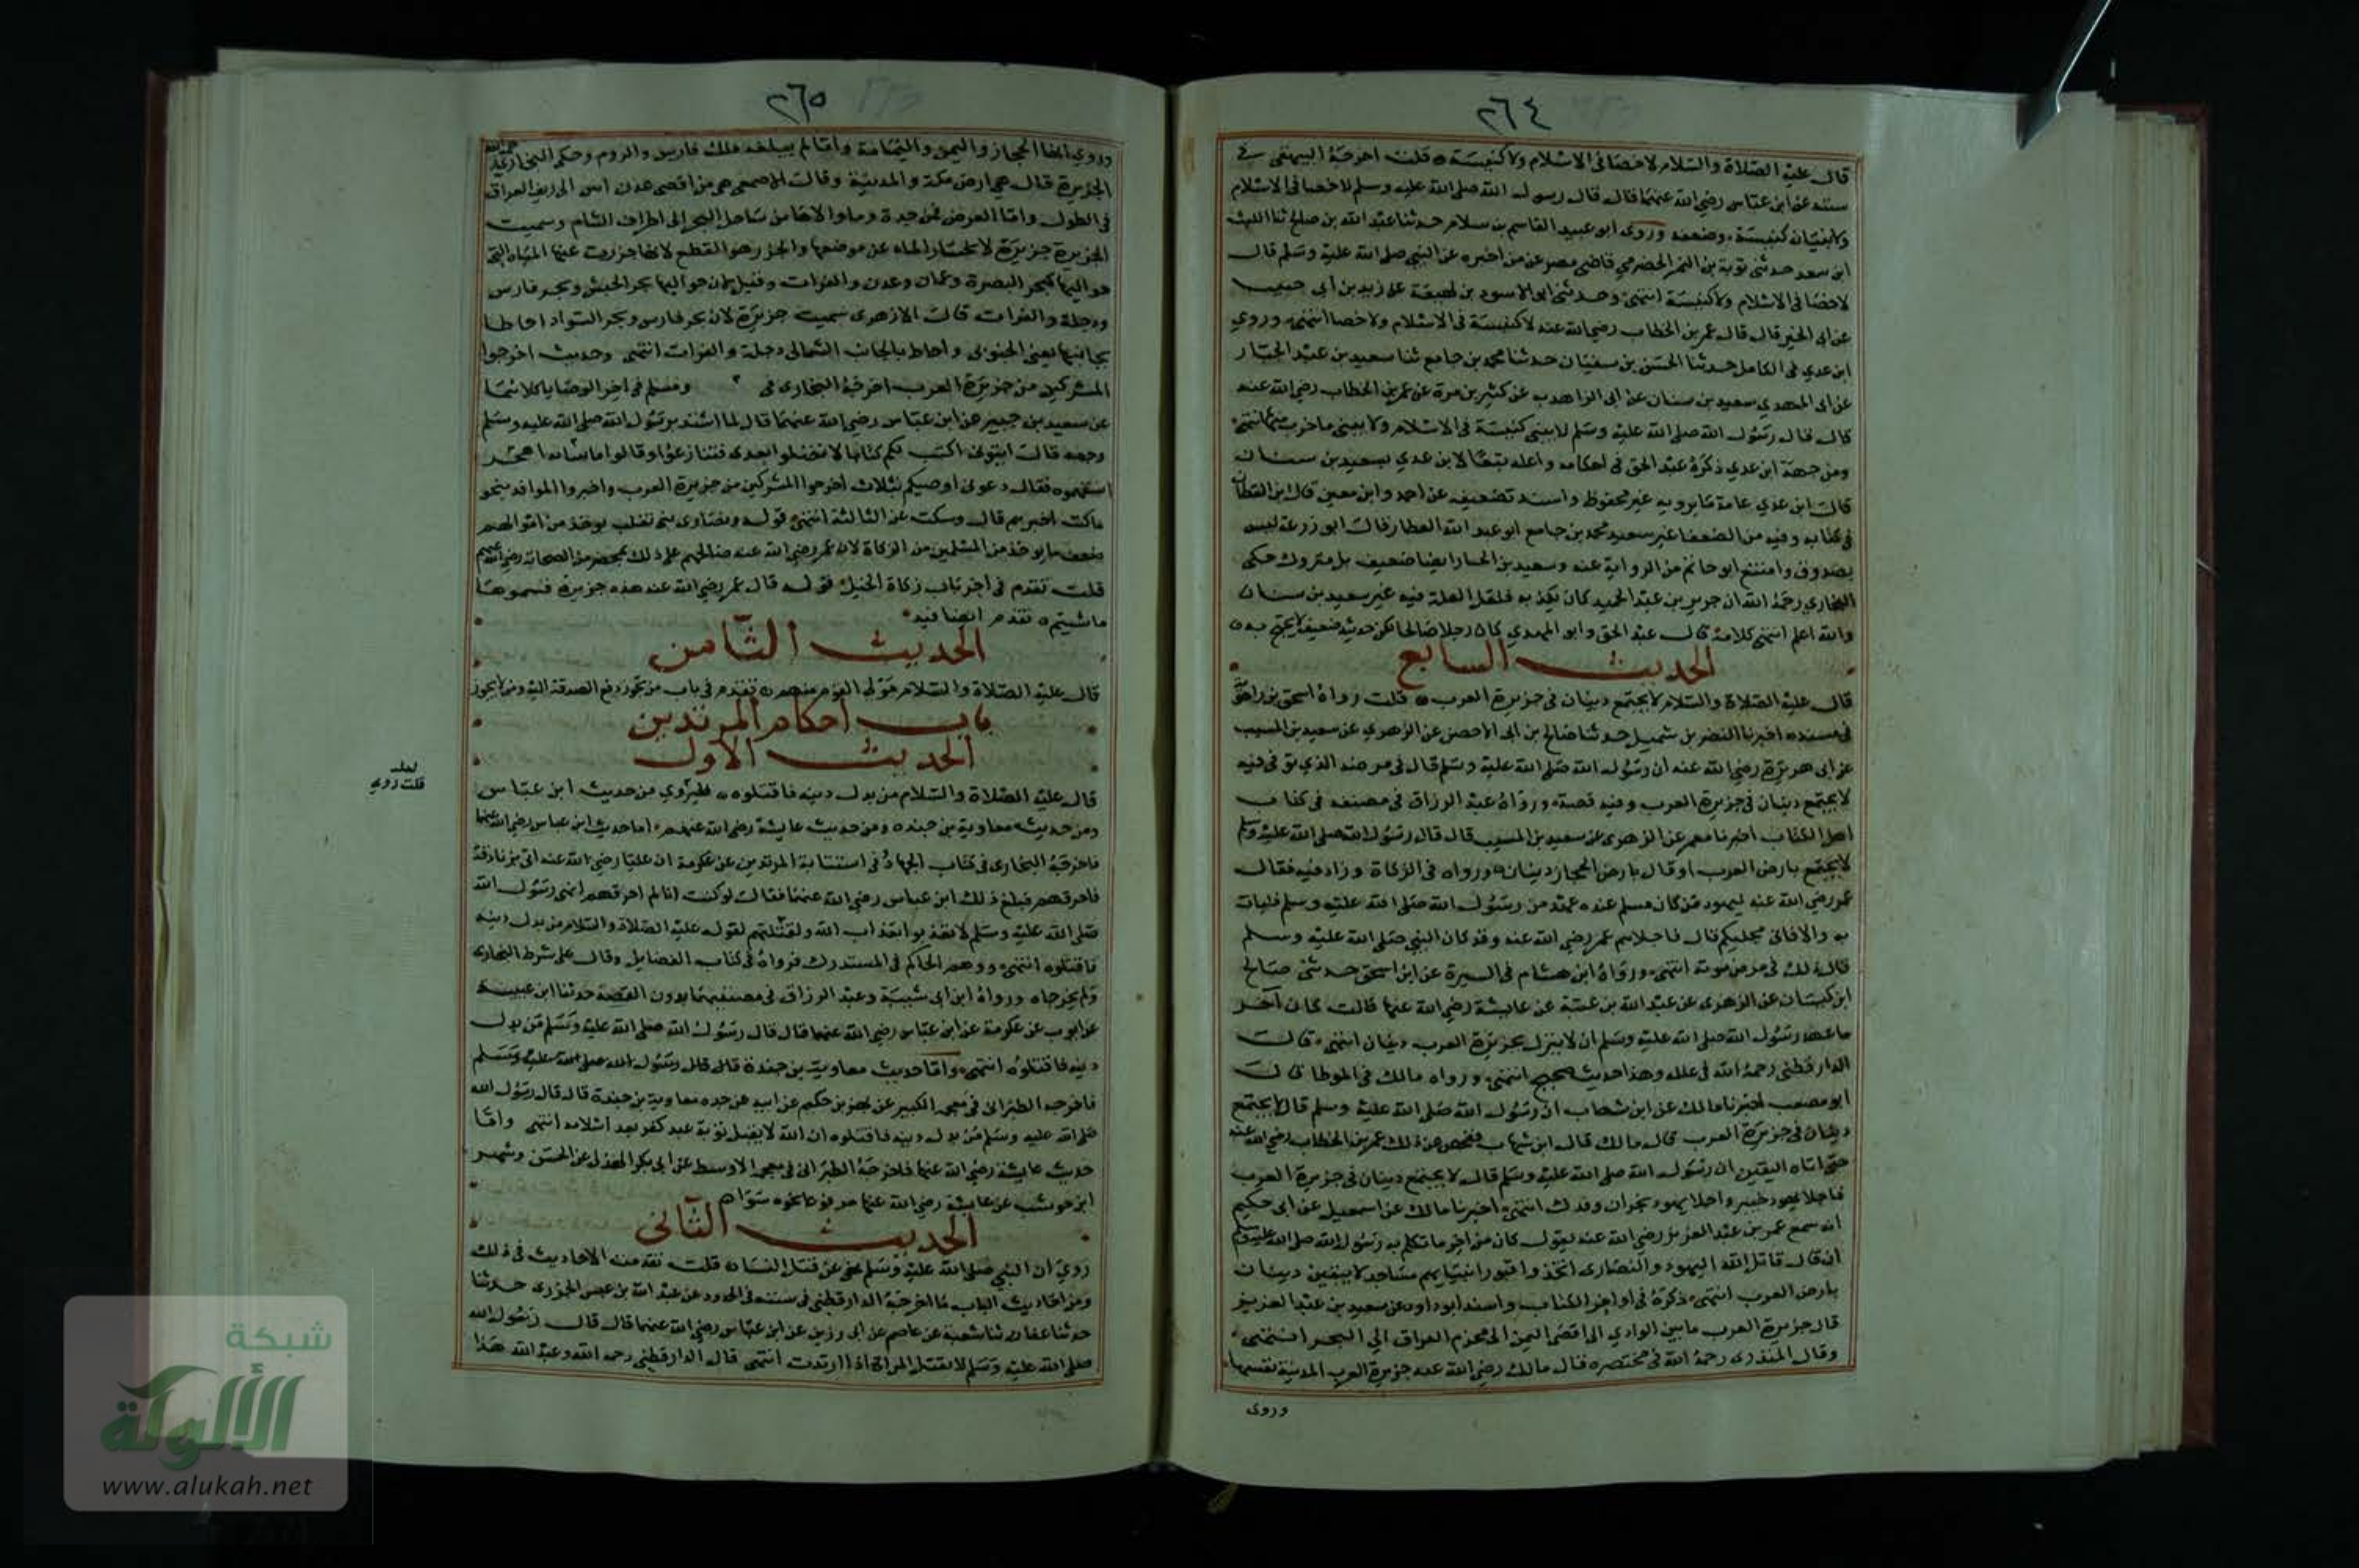 ٢٦٤
قال عليه الصلاة والسلام لا خصا في الاسلام ولا كنيسة ٥ قلت اخرجه البيهقي في
سننه عن ابن عباس رضي الله عنهما قال قال رسول الله صلى الله عليه وسلم لا خصا في الاسلام
ولا بنيان كنيسة وضعفه وروى ابو عبيد القاسم بن سلام حدثنا عبد الله بن صالح ثنا الليث
ابن سعد حدثني توبة بن النمر الحضرمي قاضي مصر عن من اخبره عن النبي صلى الله عليه وسلم قال
لا خصا في الاسلام ولا كنيسة انتهى وحدثني ابو الاسود بن لهيعة عن يزيد بن ابي حبيب
عن ابي الخير قال قال عمر بن الخطاب رضي الله عنه لا كنيسة في الاسلام ولا خصا انتهى وروي
ابن عدي في الكامل حدثنا الحسن بن سفيان حدثنا محمد بن جامع ثنا سعيد بن عبد الجبار
عن ابي المهدي سعيد بن سنان عن ابي الزاهرية عن كثير بن مرة عن عمر بن الخطاب رضي الله عنه
قال قال رسول الله صلى الله عليه وسلم لا يبنى كنيسة في الاسلام ولا يبنى ما خرب منها انتهى
ومن جهة ابن عدي ذكره عبد الحق في احكامه واعله تبعا لابن عدي بسعيد بن سنان
قال ابن عدي عامة ما يرويه غير محفوظ واسند تضعيفه عن احمد وابن معين قال ابن القطان
في كتابه وفيه من الضعفا غير سعيد محمد بن جامع ابو عبد الله العطار قال ابو زرعة ليس
بصدوق وامتنع ابو حاتم من الرواية عنه وسعيد بن الجبار ايضا ضعيف بل متروك حكى
البخاري رحمه الله ان جرير بن عبد الحميد كان يكذبه فلعل العلة فيه غير سعيد بن سنان
والله اعلم انتهى كلامه قال عبد الحق وابو المهدي كان رجلا صالحا لكن حديثه ضعيف لا يحتج به ٥
الحديث السابع
قال عليه الصلاة والسلام لا يجتمع دينان في جزيرة العرب ٥ قلت رواه اسحق بن راهويه
في مسنده اخبرنا النضر بن شميل حدثنا صالح بن ابي الاخضر عن الزهري عن سعيد بن المسيب
عن ابي هريرة رضي الله عنه ان رسول الله صلى الله عليه وسلم قال في مرضه الذي توفي فيه
لا يجتمع دينان في جزيرة العرب وفيه قصة ورواه عبد الرزاق في مصنفه في كتاب
اهل الكتاب اخبرنا معمر عن الزهري عن سعيد بن المسيب قال قال رسول الله صلى الله عليه وسلم
لا يجتمع بارض العرب او قال بارض الحجاز دينان ورواه في الزكاة وزاد فيه فقال
عمر رضي الله عنه ليهود من كان منكم عنده عهد من رسول الله صلى الله عليه وسلم فليات
به والا فاني مجليكم قال فاجلاهم عمر رضي الله عنه وقد كان النبي صلى الله عليه وسلم
قال ذلك في مرض موته انتهى ورواه ابن هشام في السيرة عن ابن اسحق حدثني صالح
ابن كيسان عن الزهري عن عبد الله بن عتبة عن عايشة رضي الله عنها قالت كان آخر
ما عهد رسول الله صلى الله عليه وسلم ان لا ينزل بجزيرة العرب دينان انتهى قال
الدارقطني رحمه الله في علله وهذا حديث صحيح انتهى ورواه مالك في الموطا قال
ابو مصعب اخبرنا مالك عن ابن شهاب ان رسول الله صلى الله عليه وسلم قال لا يجتمع
دينان في جزيرة العرب قال مالك قال ابن شهاب ففحص عن ذلك عمر بن الخطاب رضي الله عنه
حتى اتاه اليقين ان رسول الله صلى الله عليه وسلم قال لا يجتمع دينان في جزيرة العرب
فاجلا يهود خيبر واجلا يهود نجران وفدك انتهى اخبرنا مالك عن اسمعيل عن ابي حكيم
انه سمع عمر بن عبد العزيز رضي الله عنه يقول كان من اخر ما تكلم به رسول الله صلى الله عليه وسلم
ان قال قاتل الله اليهود والنصارى اتخذوا قبور انبيايهم مساجد لا يبقين دينان
بارض العرب انتهى ذكره في اواخر الكتاب واسند ابو داود عن سعيد بن عبد العزيز
قال جزيرة العرب ما بين الوادي الى اقصى اليمن الى تخوم العراق الى البحر انتهى
وقال المنذري رحمه الله في مختصره قال مالك رضي الله عنه جزيرة العرب المدينة نفسها
وروى
٢٦٥
وروي انها الحجاز واليمن واليمامة وما لم يبلغه ملك فارس والروم وحكم البخاري عن
الجزيرة قال هي ارض مكة والمدينة وقال الاصمعي هي من اقصى عدن ابين الى ريف العراق
في الطول واما العرض فمن جدة وما والاها من ساحل البحر الى اطراف الشام وسميت
الجزيرة جزيرة لانحسار الماء عن موضعها والجزر هو القطع لانها جزرت عنها المياه التي
حواليها كبحر البصرة وعمان وعدن والفرات وقيل لان حواليها بحر الحبش وبحر فارس
ودجلة والفرات قال الازهري سميت جزيرة لان بحر فارس وبحر السواد احاطا
بجانبها يعني الجنوبي واحاط بالجانب الشمالي دجلة والفرات انتهى وحديث اخرجوا
المشركين من جزيرة العرب اخرجه البخاري في ومسلم في اخر الوصايا كلاهما
عن سعيد بن جبير عن ابن عباس رضي الله عنهما قال لما اشتد برسول الله صلى الله عليه وسلم
وجعه قال ايتوني اكتب لكم كتابا لا تضلوا بعدي فتنازعوا وقالوا ما شانه اهجر
استفهموه فقال دعوني اوصيكم بثلاث اخرجوا المشركين من جزيرة العرب واجيزوا الوافد بنحو
ما كنت اجيزهم قال وسكت عن الثالثة انتهى قوله ونصارى بني تغلب يوخذ من اموالهم
ضعف ما يوخذ من المسلمين من الزكاة لان عمر رضي الله عنه صالحهم على ذلك بمحضر من الصحابة رضي الله عنهم
قلت تقدم في اخر باب زكاة الخيل قوله قال عمر رضي الله عنه هذه جزية فسموها
ما شيتم ٥ تقدم ايضا فيه
الحديث الثامن
قال عليه الصلاة والسلام مولى القوم منهم ٥ تقدم في باب من يجوز دفع الصدقة اليه ومن لا يجوز
باب احكام المرتدين
الحديث الاول
لعله
قلت روي
قال عليه الصلاة والسلام من بدل دينه فاقتلوه روي من حديث ابن عباس
ومن حديث معاوية بن حيدة ومن حديث عايشة رضي الله عنهم اما حديث ابن عباس رضي الله عنهما
فاخرجه البخاري في كتاب الجهاد وفي استتابة المرتدين عن عكرمة ان عليا رضي الله عنه اتى بزنادقة
فاحرقهم فبلغ ذلك ابن عباس رضي الله عنهما فقال لو كنت انا لم احرقهم لنهي رسول الله
صلى الله عليه وسلم لا تعذبوا بعذاب الله ولقتلتهم لقوله عليه الصلاة والسلام من بدل دينه
فاقتلوه انتهى ووهم الحاكم في المستدرك فرواه في كتاب الفضايل وقال على شرط البخاري
ولم يخرجاه ورواه ابن ابي شيبة وعبد الرزاق في مصنفيهما بدون القصة حدثنا ابن عيينة
عن ايوب عن عكرمة عن ابن عباس رضي الله عنهما قال قال رسول الله صلى الله عليه وسلم من بدل
دينه فاقتلوه انتهى واما حديث معاوية بن حيدة قال قال رسول الله صلى الله عليه وسلم
فاخرجه الطبراني في معجمه الكبير عن بهز بن حكيم عن ابيه عن جده معاوية بن حيدة قال قال رسول الله
صلى الله عليه وسلم من بدل دينه فاقتلوه ان الله لا يقبل توبة عبد كفر بعد اسلامه انتهى واما
حديث عايشة رضي الله عنها فاخرجه الطبراني في معجمه الاوسط عن ابي بكر الهذلي عن الحسن وشهر
ابن حوشب عن عايشة رضي الله عنها مرفوعا نحوه سوا ٥
الحديث الثاني
روي ان النبي صلى الله عليه وسلم نهى عن قتل النسا ٥ قلت تقدمت الاحاديث في ذلك
ومن احاديث الباب ما اخرجه الدارقطني في سننه في الحدود عن عبد الله بن عيسى الجزري حدثنا
حدثنا عفان ثنا شعبة عن عاصم عن ابي رزين عن ابن عباس رضي الله عنهما قال قال رسول الله
صلى الله عليه وسلم لا تقتل المراة اذا ارتدت انتهى قال الدارقطني رحمه الله وعبد الله هذا
شبكة
الألوكة
www.alukah.net